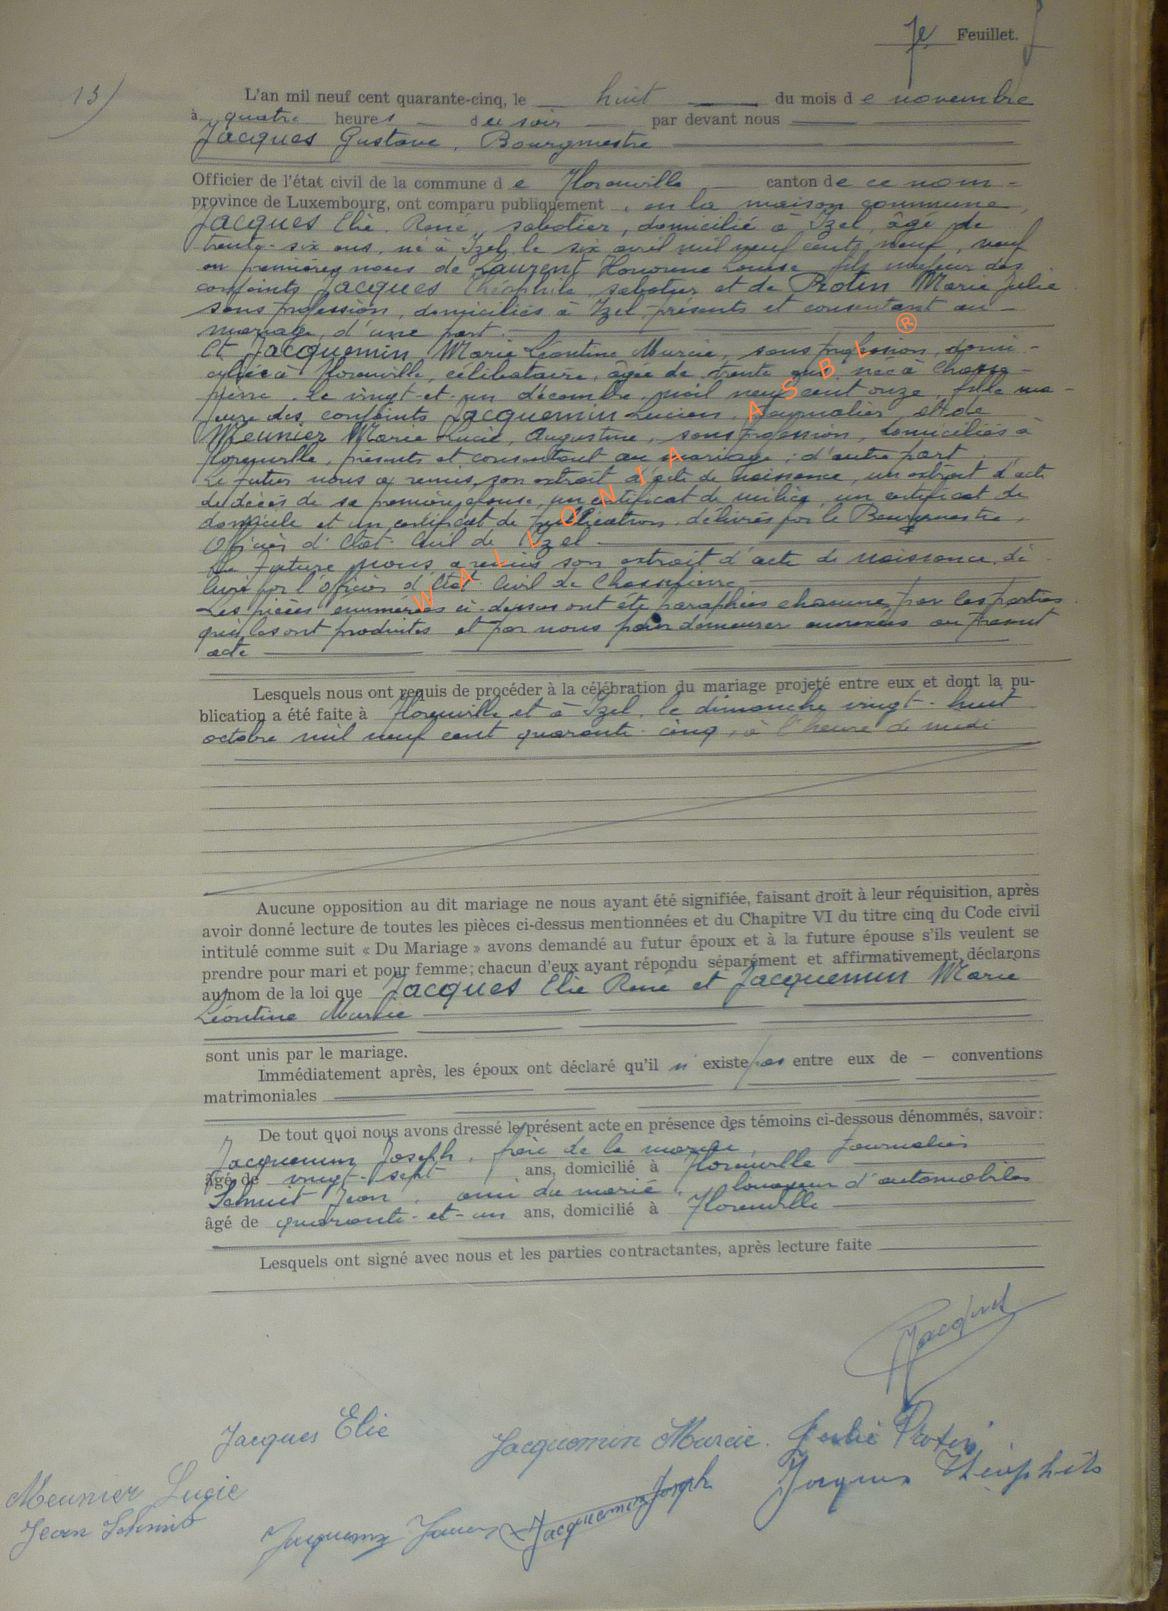 7e Feuillet.
13)
L'an mil neuf cent quarante-cinq, le huit du mois d e novembre
à quatre heures du soir par devant nous
Jacques Gustave, Bourgmestre
Officier de l'état civil de la commune d e Florenville canton de ce nom -
province de Luxembourg, ont comparu publiquement, en la maison commune,
Jacques Elie René, sabotier, domicilié à Izel, âgé de
trente-six ans, né à Izel, le six avril mil neuf cent neuf, veuf
en premières noces de Laurent Honorine Louise fils majeur des
conjoints Jacques Théophile, sabotier et de Protin Marie Julie
sans profession, domiciliés à Izel présents et consentant au -
mariage, d'une part.
Et Jacquemin, Marie Léontine Murcie, sans profession, domi -
ciliée à Florenville, célibataire, âgée de trente ans, née à Chasse -
pierre, le vingt-et-un décembre mil neuf cent onze, fille ma -
jeure des conjoints Jacquemin Lucien, journalier, et de
Meunier Marie Lucie, Augustine, sans profession, domiciliés à
Florenville, présents et consentant au mariage; d'autre part.
Le futur nous a remis son extrait d'acte de naissance, un extrait d'acte
de décès de sa première épouse, un certificat de milice, un certificat de
domicile et un certificat de publication, délivrés par le Bourgmestre,
Officier d'Etat-Civil de Izel
La future nous a remis son extrait d'acte de naissance, dé -
livré par l'Officier d'Etat Civil de Chassepierre
Les pièces énumérées ci-dessus ont été paraphées chacune par les parties
qui les ont produites et par nous pour demeurer annexées au présent
acte
WALLONIA ASBL ®
Lesquels nous ont requis de procéder à la célébration du mariage projeté entre eux et dont la pu-
blication a été faite à Florenville et à Izel, le dimanche vingt-huit
octobre mil neuf cent quarante-cinq, à l'heure de midi
Aucune opposition au dit mariage ne nous ayant été signifiée, faisant droit à leur réquisition, après
avoir donné lecture de toutes les pièces ci-dessus mentionnées et du Chapitre VI du titre cinq du Code civil
intitulé comme suit « Du Mariage » avons demandé au futur époux et à la future épouse s'ils veulent se
prendre pour mari et pour femme; chacun d'eux ayant répondu séparément et affirmativement, déclarons
au nom de la loi que Jacques Elie René et Jacquemin Marie
Léontine Murcie
sont unis par le mariage.
Immédiatement après, les époux ont déclaré qu'il n'existe pas entre eux de - conventions
matrimoniales
De tout quoi nous avons dressé le présent acte en présence des témoins ci-dessous dénommés, savoir:
Jacquemin Joseph, frère de la mariée, journalier
âgé de vingt-sept ans, domicilié à Florenville
Schmit Jean, ami du marié, loueur d'automobiles
âgé de quarante-et-un ans, domicilié à Florenville
Lesquels ont signé avec nous et les parties contractantes, après lecture faite
Jacques Elie
Jacquemin Murcie. Julie Protin
Meunier Lucie
Jacquemin Joseph
Jacques Théophile
Jean Schmit